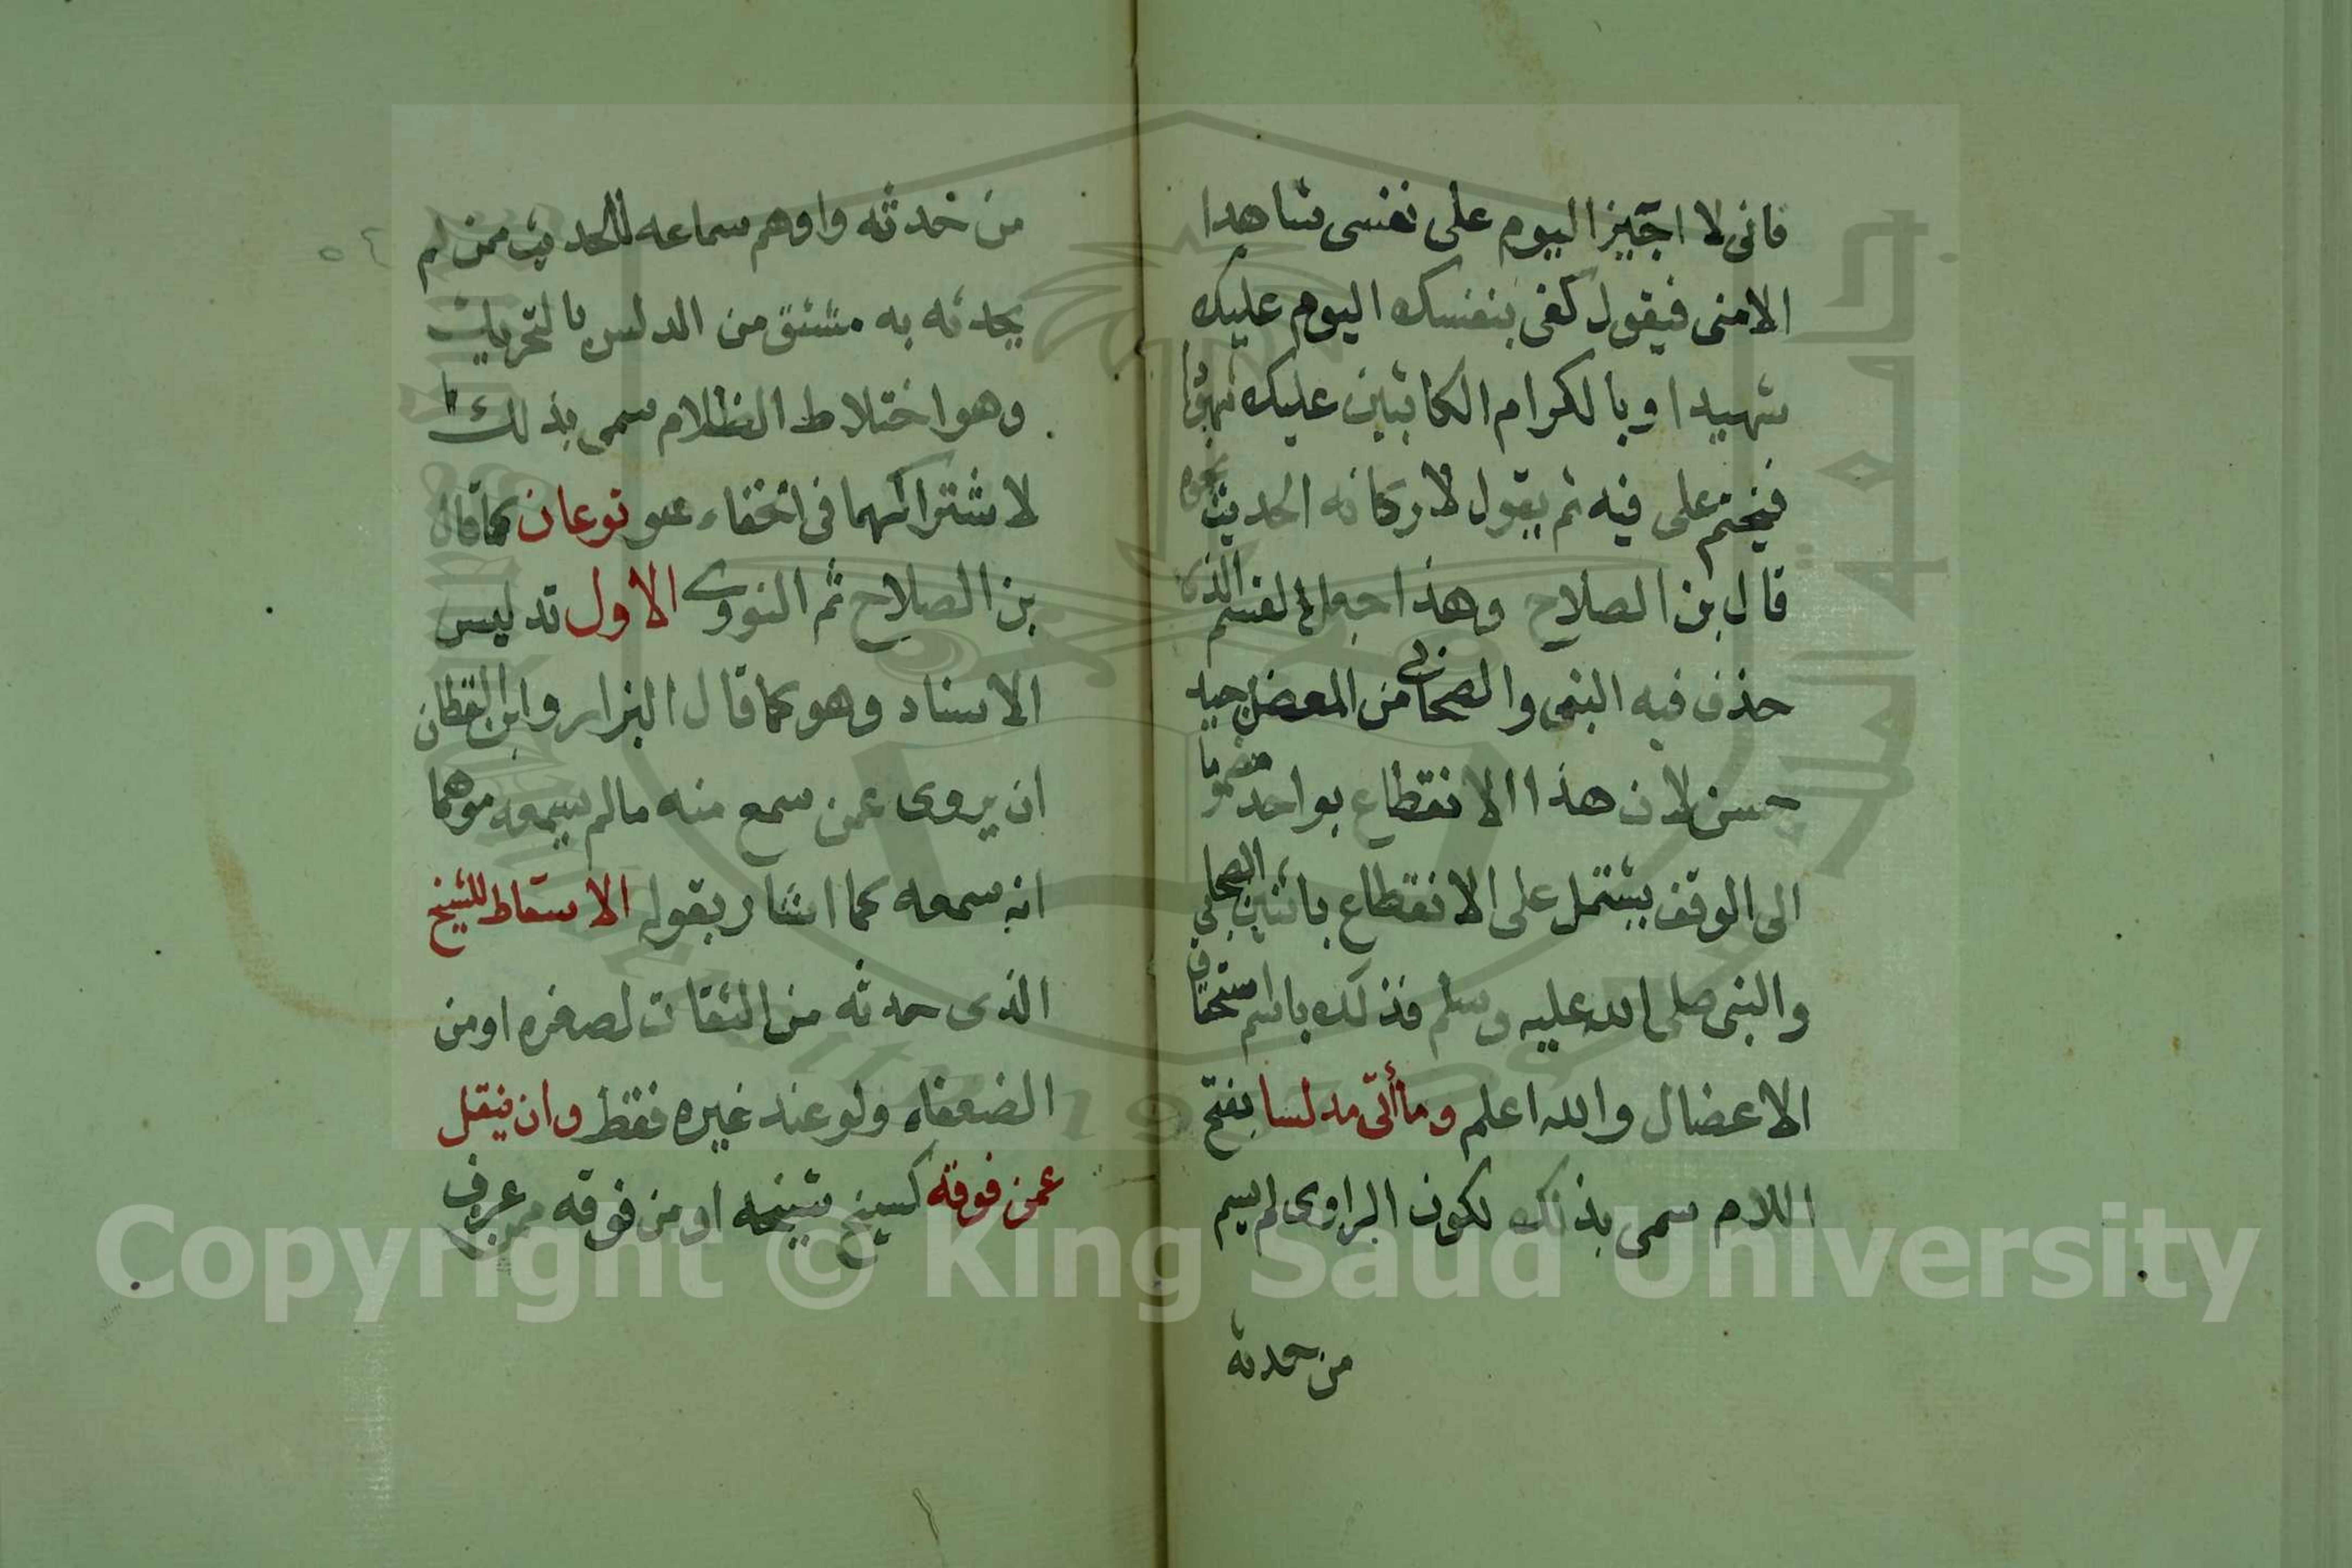 فانى لا اجيز اليوم على نفسى شاهدا
الا منى فيقول كفى بنفسك اليوم عليك
شهيدا وبالكرام الكاتبين عليك شهودا
فيختم على فيه ثم يقول لاركانه الحديث نحوه
قال بن الصلاح وهذا جعل القسم الذى
حذف فيه النبى والصحابى من المعضل جيد
حسن لان هذا الانقطاع بواحد مضموما
الى الوقف يشتمل على الانقطاع باثنين الصحابى
والنبى صلى الله عليه وسلم فذلك باسم استحقاق
الاعضال والله اعلم وما أتى مدلسا بفتح
اللام سمى بذلك لكون الراوى لم يسم
من حدثه
من حدثه واوهم سماعه للحديث ممن لم
يحدثه به مشتق من الدلس بالتحريك
وهو اختلاط الظلام سمى بذلك
لاشتراكهما فى الخفاء وهو نوعان كما قال
بن الصلاح ثم النووى الاول تدليس
الاسناد وهو كما قال البزار وابن القطان
ان يروى عمن سمع منه مالم يسمعه موهما
انه سمعه كما اشار بقوله الاسقاط للشيخ
الذى حدثه من الثقات لصغره او من
الضعفاء ولو عند غيره فقط وان ينقل
عمن فوقه كشيخ شيخه او من فوقه ممن عرف
٥٤
Copyright © King Saud University